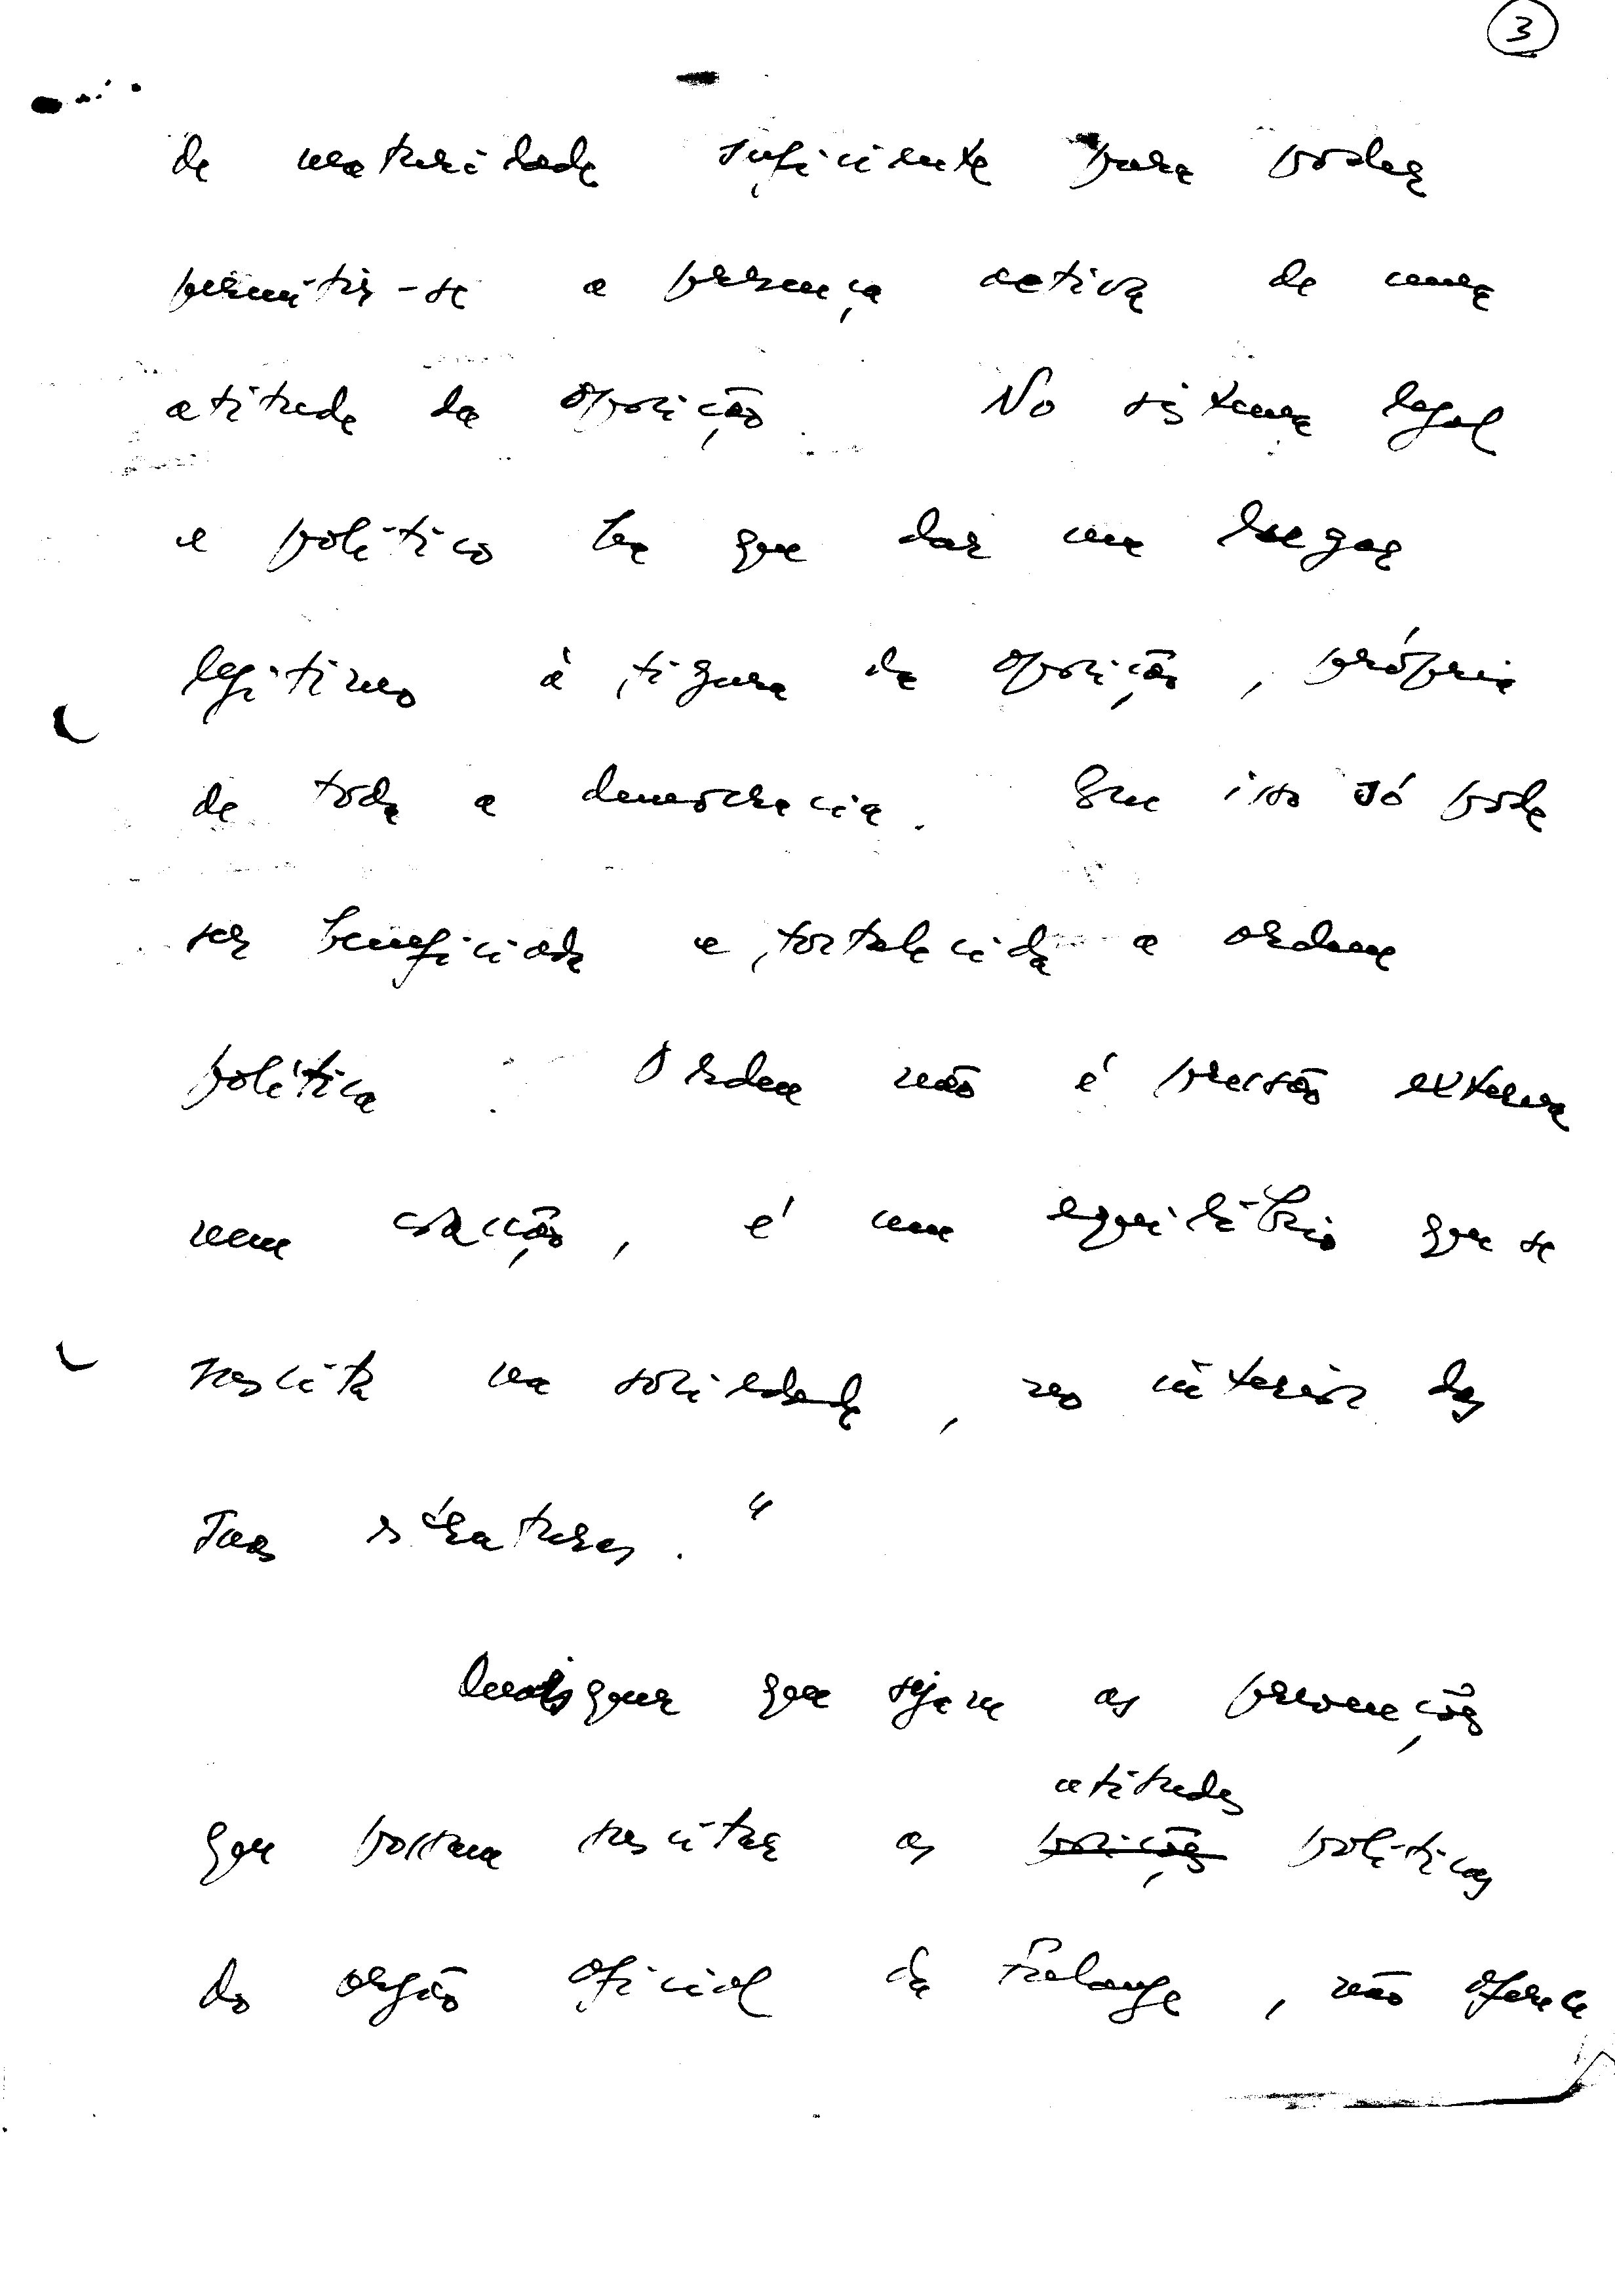 3
de maturidade suficiente para poder
permitir-se a presença activa de uma
atitude de oposição. No sistema legal
e político há que dar um lugar
legítimo à figura da oposição, própria
de toda a democracia. Que isso só pode
ser beneficiada e fortalecida a ordem
política. Ordem não é pressão externa
nem coacção, é um equilíbrio que se
suscita na sociedade, no interior das
suas estruturas."
Quaisquer que sejam as prevenções
atitudes
que possam suscitar as posições políticas
do orgão oficial da Falange, não oferece